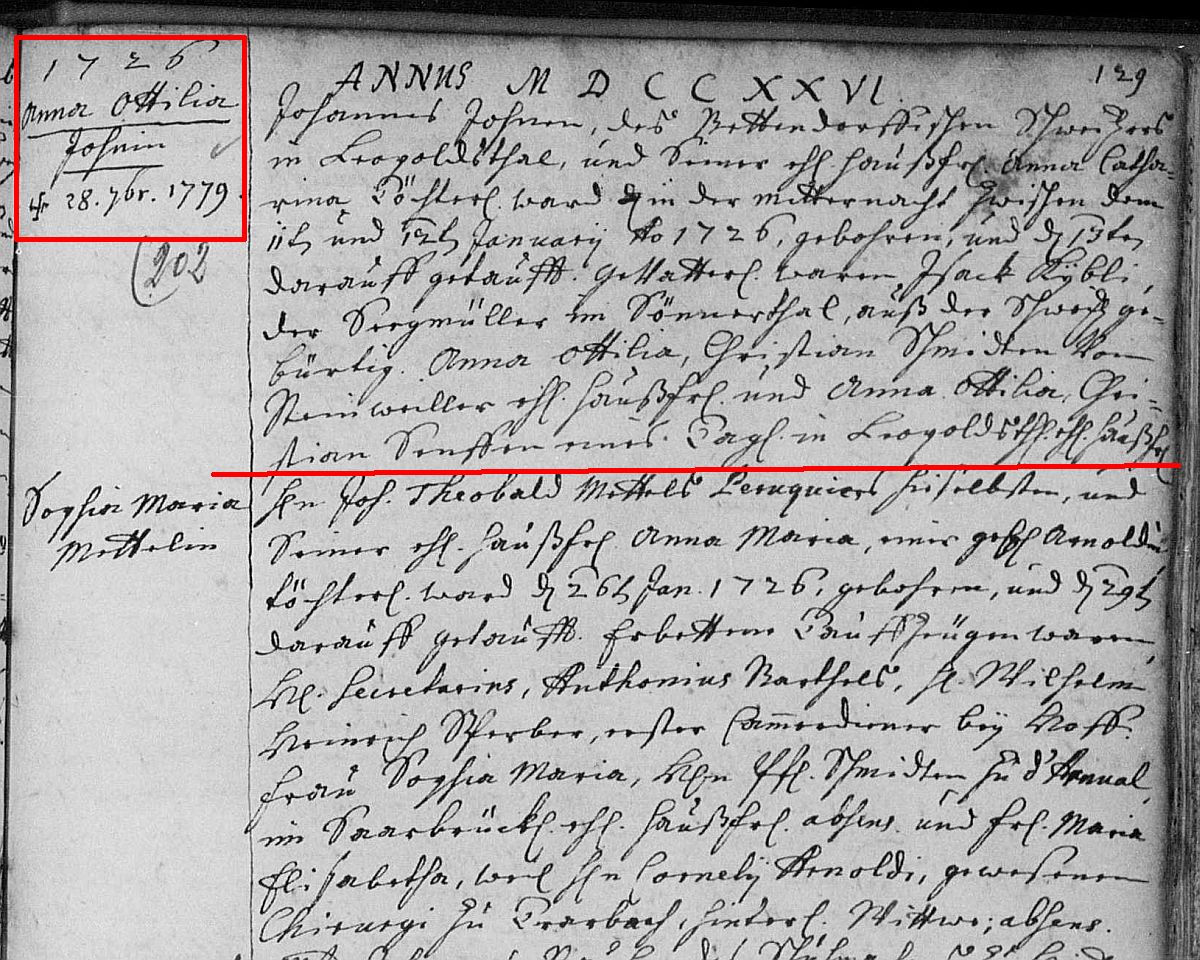 1726
Anna Ottilia
Johnin
28. 7br. 1779.
(202
129
ANNUS MDCCXXVI.
Johannes Johnen, des Bettendorffischen Schweitzers
in Leopoldsthal, und Seiner ehl. Haußfr. Anna Catha-
rina Töchterl. ward d. in der Mitternacht zwischen dem
11t. und 12t. January Ao 1726, gebohren, und d. 13ten
darauff getaufft. Gevatterl. waren Isack Rybli,
der Seegmüller im Sönnerthal, auß der Schweitz ge-
bürtig. Anna Ottilia, Christian Schmidten Von
Steinweiller ehl. Haußfr. und Anna Ottilia, Chri-
stian Senffen eines Tagl. in Leopoldsthl. ehl. Haußfr.
Sophia Maria
Mettelin
Hn Joh. Theobald Mettels Peruquiers hieselbsten, und
Seiner ehl. Haußfr. Anna Maria, einer geb. Arnoldin
töchterl. ward d. 26t. Jan. 1726, gebohren, und d. 29t.
darauff getaufft. Erbettene Tauffzeugen waren,
Hl. Secretarius, Anthonius Barthels, H. Wilhelm
Heinrich Sperber, erster Cammerdiener bey Hoff.
Frau Sophia Maria, Hn Schmidten zu St Arnual,
im Saarbrück. ehl. Haußfr. absens. und Fr. Maria
Elisabetha, weil Hn Cornely Arnoldi, gewesenen
Chirurgi zu Trarbach, hinterl. Wittwe; absens.